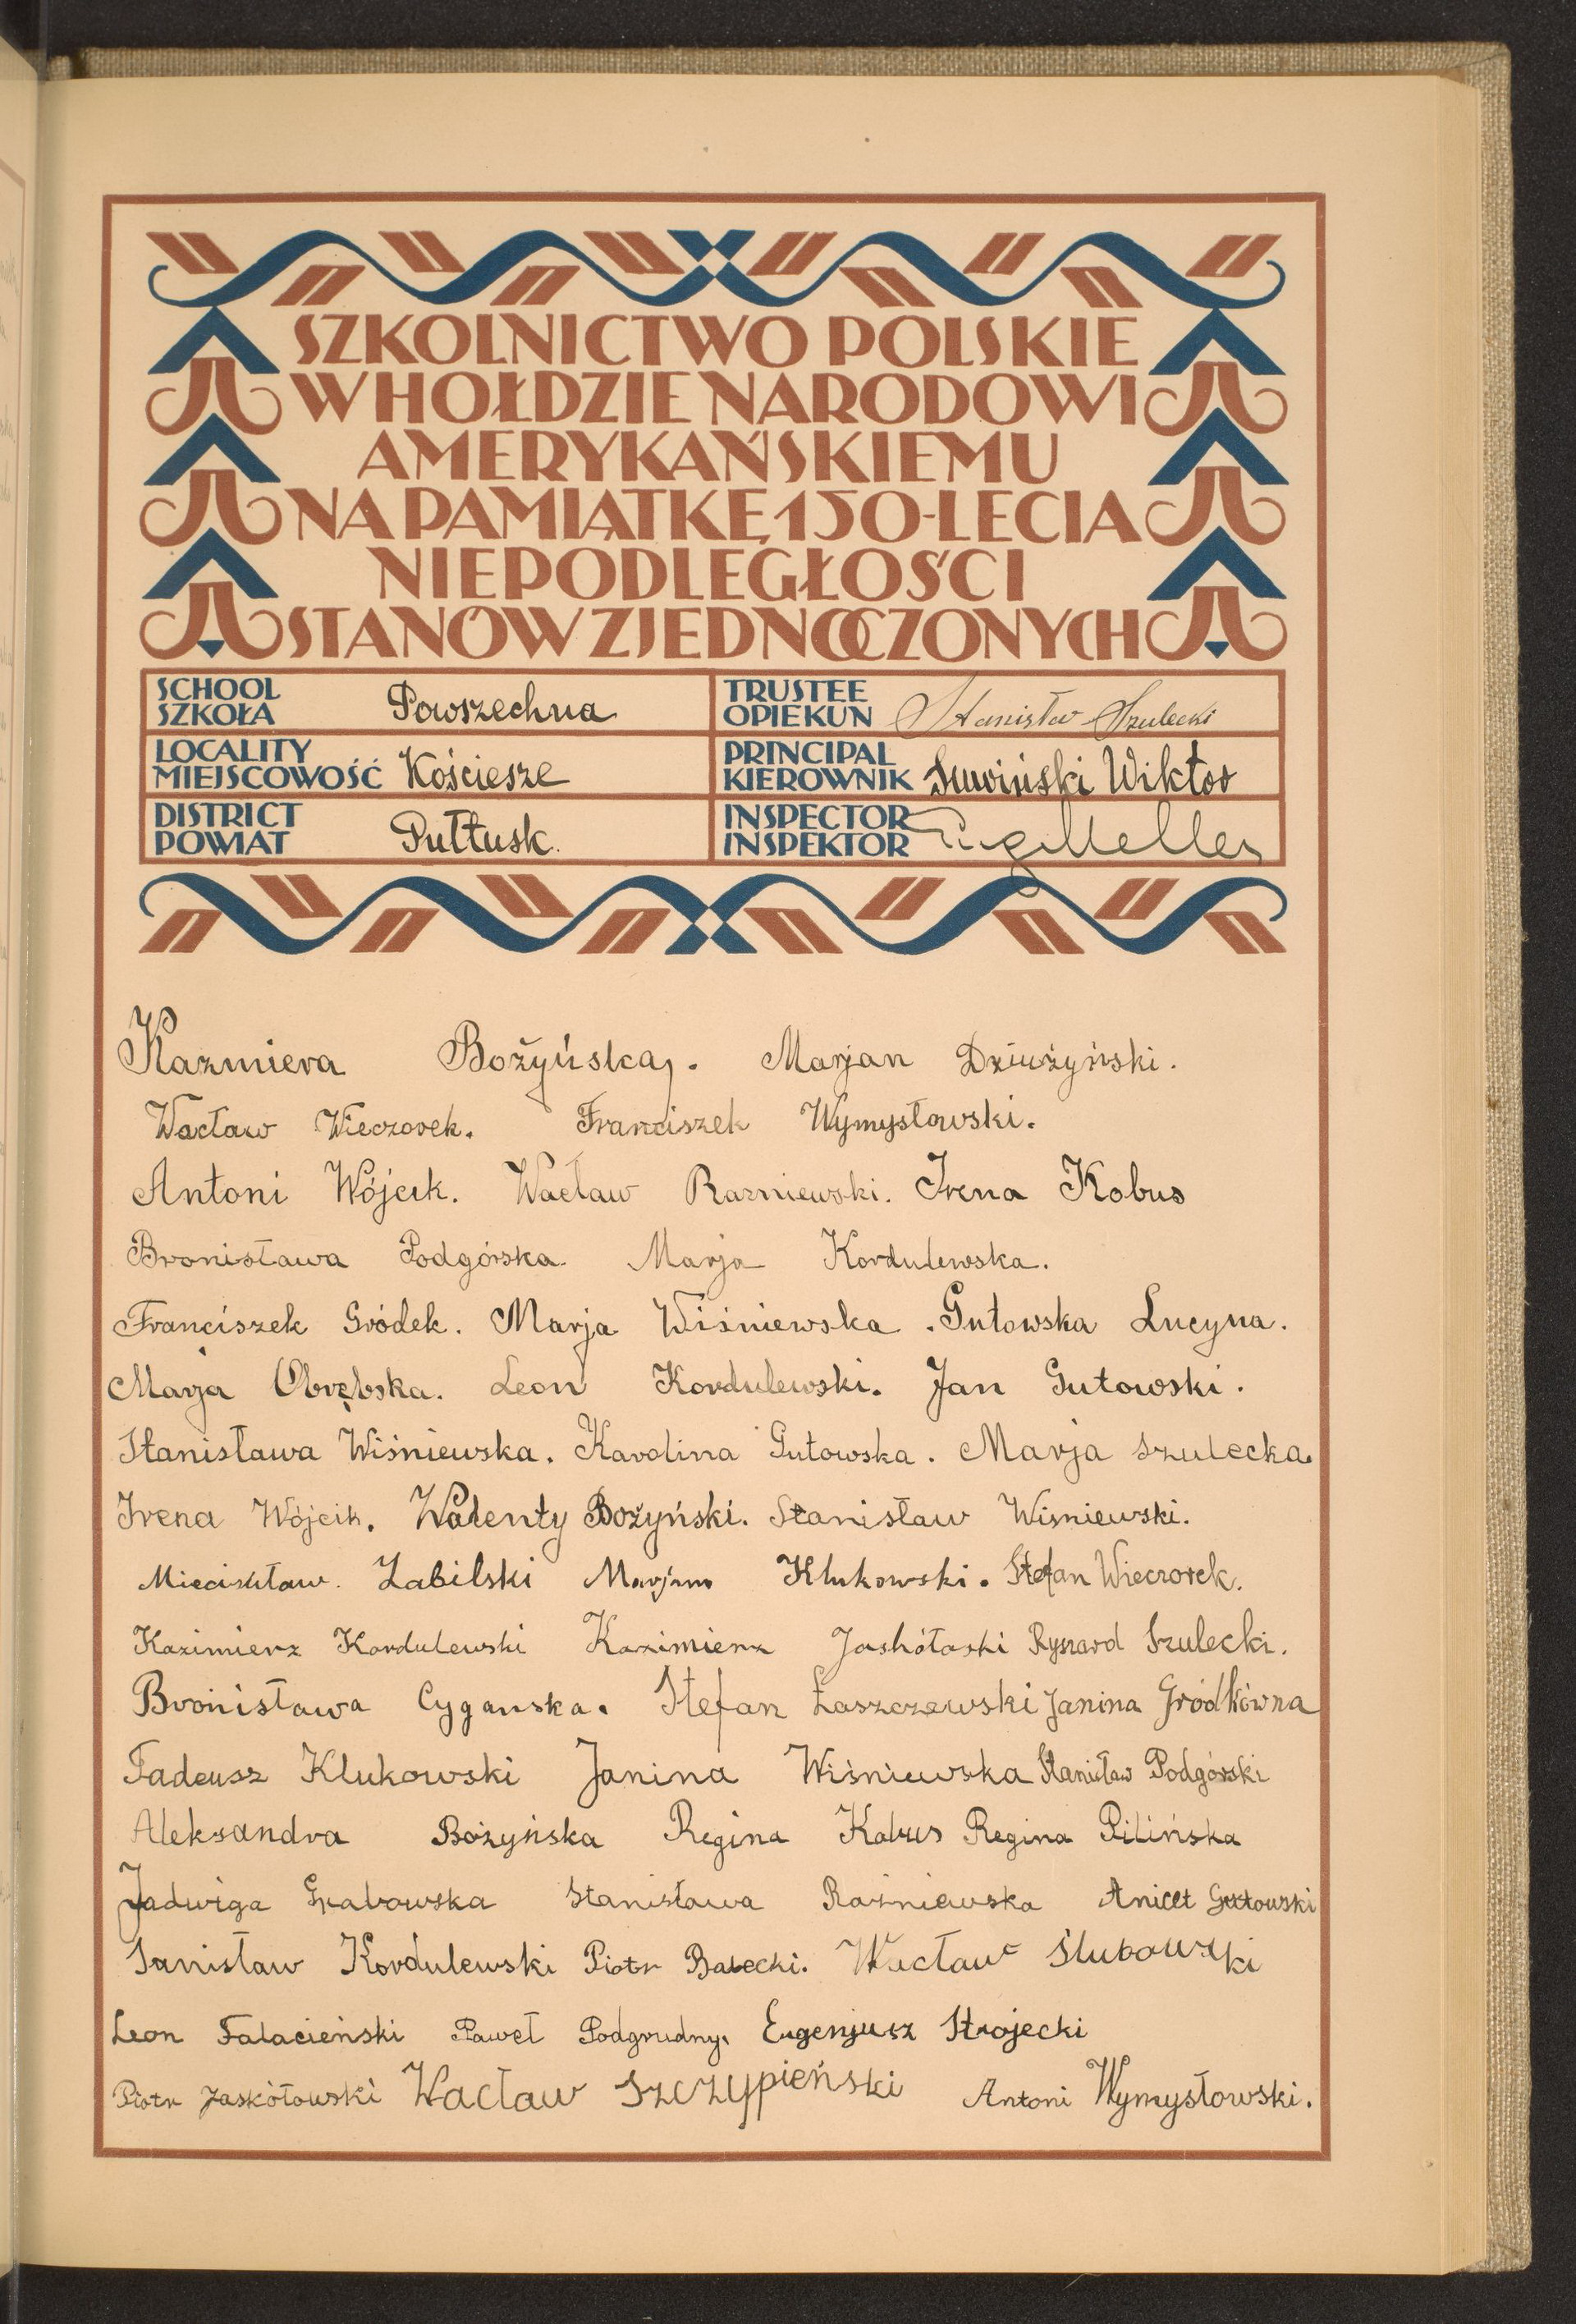 SZKOLNICTWO POLSKIE
W HOŁDZIE NARODOWI
AMERYKAŃSKIEMU
NA PAMIĄTKĘ 150-LECIA
NIEPODLEGŁOŚCI
STANÓW ZJEDNOCZONYCH
SCHOOL
SZKOŁA Powszechna
TRUSTEE
OPIEKUN Stanisław Szulecki
LOCALITY
MIEJSCOWOŚĆ Kościesze
PRINCIPAL
KIEROWNIK Wiktor
DISTRICT
POWIAT Pułtusk.
INSPECTOR
INSPEKTOR
Kazmiera Bożyńska. Marjan Dziużyński.
Wacław Wieczorek. Franciszek Wymysłowski.
Antoni Wójcik. Wacław Razniewski. Irena Kobus
Bronisława Podgórska Marja Kordulewska.
Franciszek Gródek. Marja Wiśniewska. Gutowska Lucyna.
Marja Obrębska. Leon Kordulewski. Jan Gutowski.
Stanisława Wiśniewska. Karolina Gutowska. Marja Szulecka.
Irena Wójcik. Walenty Bożyński. Stanisław Wisniewski.
Zabilski Marjan Klukowski. Stefan Wieczorek.
Kazimierz Kordulewski Kazimierz Ryszard Szulecki.
Bronisława Cyganska. Stefan Łaszczewski Janina Gródkówna
Tadeusz Klukowski Janina Wiśniewska Stanisław Podgórski
Aleksandra Bożyńska Regina Kobus Regina Pilińska
Jadwiga Grabowska Stanisława Raźniewska Anicet Gutowski
Stanisław Kordulewski Piotr Wacław Ślubowski
Leon Falacieński Paweł Podgrudny. Eugenjusz Strojecki
Piotr Jaskółowski Wacław Szczypieński Antoni Wymysłowski.